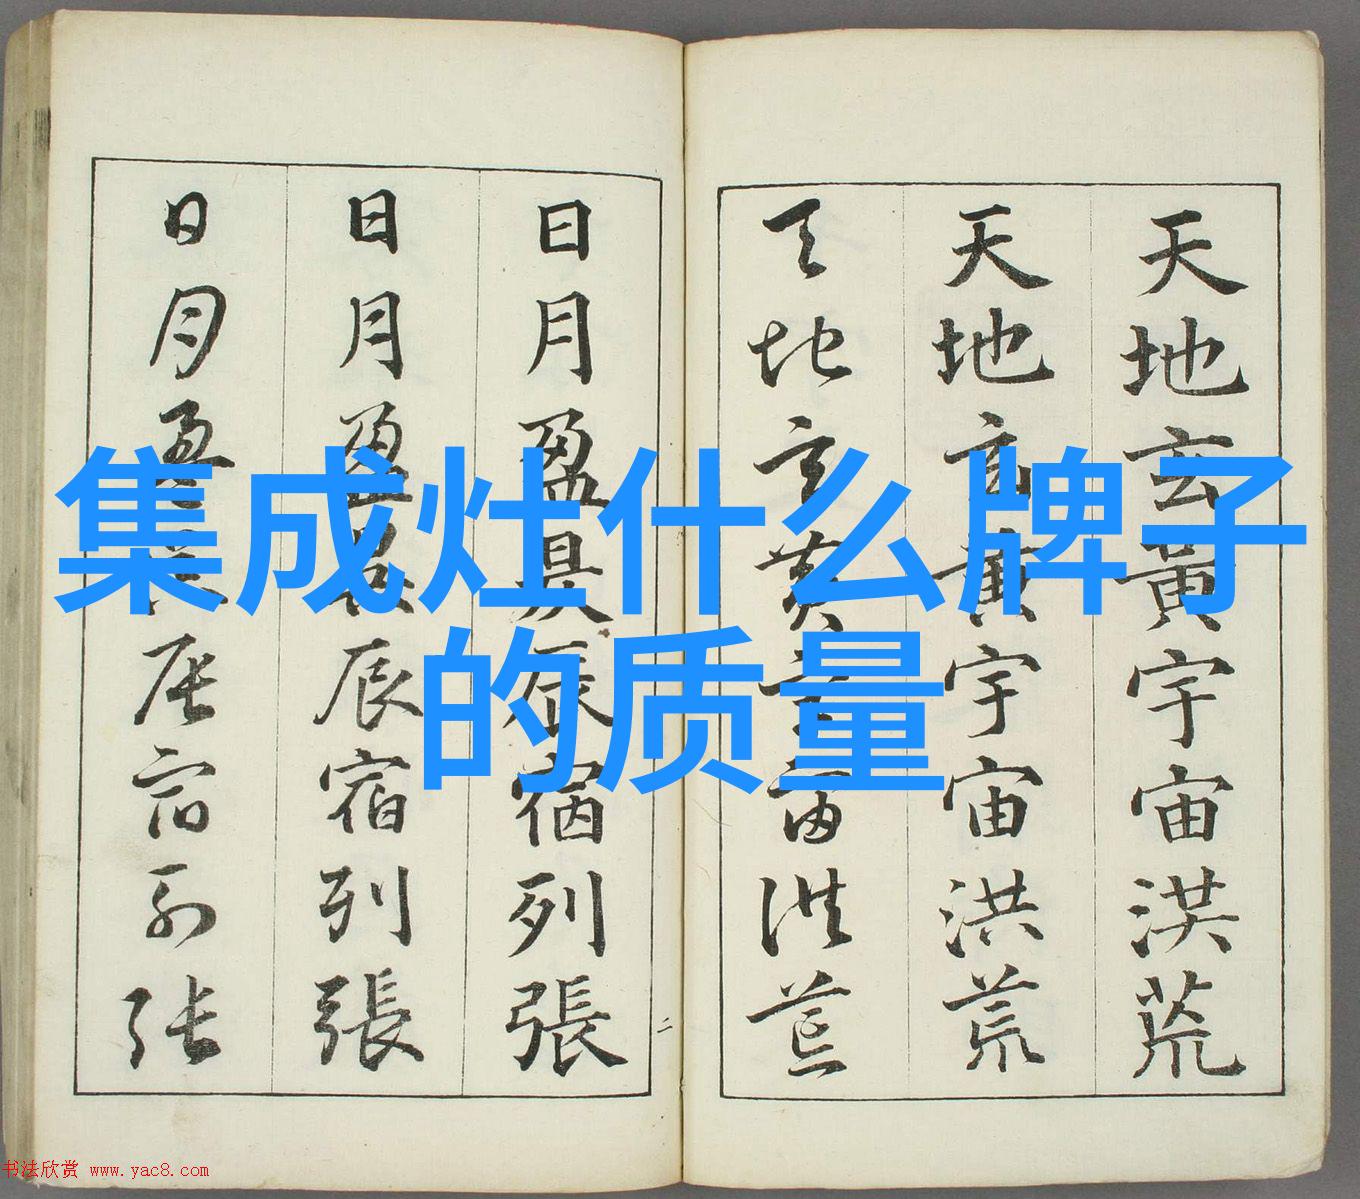 集成灶什么牌子
的质量
天地玄黃宇宙洪荒
天地玄黃宇宙洪荒
天地玄黃宇宙洪荒
日月盈昃辰宿列張
日月盈昃辰宿列張
日月盈昃辰宿列張
二
书法欣赏 www.yac8.com